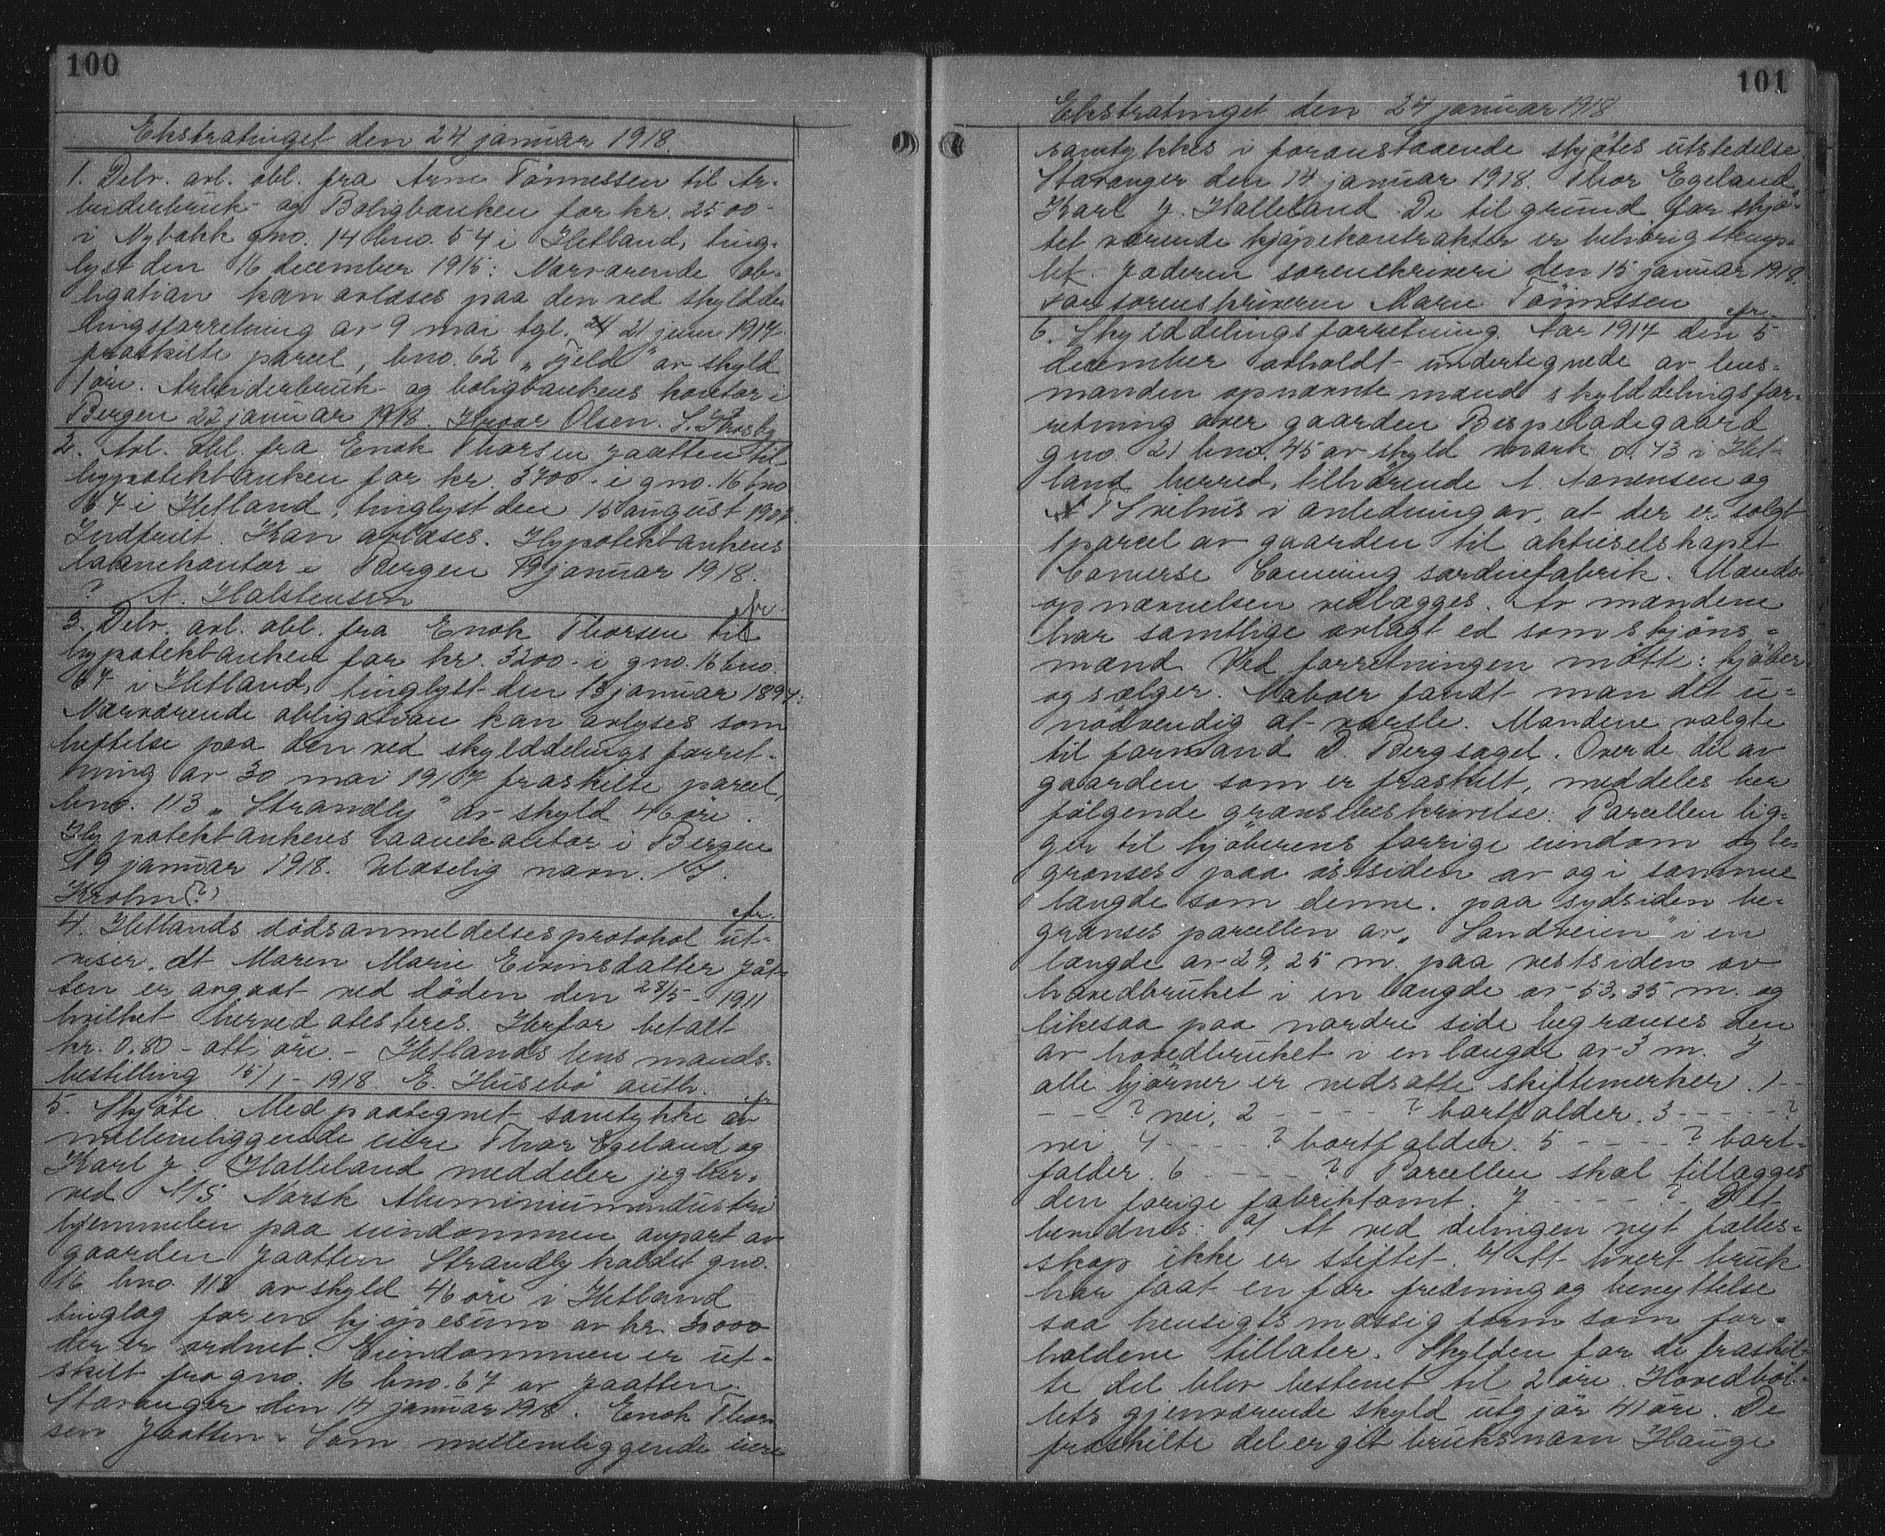 100
Ekstratinget den 24 januar 1918.
1. Delv. avl. obl. fra Arne Tönnessen til Ar-
beiderbruk- og Boligbanken for kr. 2500-
i Nybakk gno. 14 bno. 54 i Hetland, ting-
lyst den 16 december 1915: Nærværende ob-
ligation kan avlæses paa den ved skylddel-
lingsforretning av 9 mai tgl. 21 juni 1917
fraskilte parcel, bno. 62 „Fjeld" av skyld
1 öre. Arbeiderbruk- og boligbankens kontor i
Bergen 22 januar 1918. Olsen.
2. Avl. obl. fra Enok Thorsen Jaatten til
hypotekbanken for kr. 3700.- i gno. 16 bno
67 i Hetland, tinglyst den 15 august
Indfriet. Kan avlæses. Hypotekbankens
laanekontor i Bergen 19 januar 1918.
? A. Halstensen
fr.
3. Delv. avl. obl. fra Enok Thorsen til
hypotekbanken for kr. 3200.- i gno. 16 bno.
67 i Hetland, tinglyst den 13 januar 1897:
Nærværende obligation kan avlyses som
heftelse paa den ved skylddelingsforret-
ning av 30 mai 1917 fraskilte parcel,
bno. 113 „Strandly" av skyld 46 öre.
Hypotekbankens laanekontor i Bergen
19 januar 1918. Ulæselig navn.
Krohn (?)
fr.
4. Hetlands dödsanmeldelsesprotokol ut-
viser, at Maren Marie Eivinsdatter Jåt-
ten er avgaat ved döden den 28/5 - 1911
hvilket herved atesteres. Herfor betalt
kr. 0,80 - otti öre. - Hetlands lensmands-
bestilling 15/1 - 1918 E. Husebö auth.
fr.
5. Skjöte. Med paategnet samtykke av
mellemliggende eiere Thor Egeland og
Karl J. Halleland meddeler jeg her-
ved A/S Norsk Aluminiumindustri
hjemmelen paa eiendommen anpart av
gaarden Jaatten Strandly kaldet gno.
16 bno. 113 av skyld 46 öre i Hetland
tinglag for en kjöpesum av kr.
der er ordnet. Eiendommen er ut-
skilt fra gno. 16 bno. 67 av Jaatten.
Stavanger den 14 januar 1918. Enok Thor-
sen Jaatten. Som mellemliggende eiere
101
Ekstratinget den 24 januar 1918
samtykkes i foranstaaende skjötes utstedelse
Stavanger den 14 januar 1918. Thor Egeland,
Karl J. Halleland. De til grund for skjö-
tet værende kjöpekontrakter er behörig stemp-
let. Jæderen sorenskriveri den 15 januar 1918.
For sorenskriveren Marie Tönnessen
fr.
6. Skylddelingsforretning. Aar 1917 den 5
december avholdt undertegnede av lens-
manden opnævnte mænd skylddelingsfor-
retning over gaarden Bispeladegaard
gno. 21 bno. 45 av skyld mark 0.43 i Het-
land herred, tilhörende A. Aanensen og
T Svilnis i anledning av, at der er solgt
1 parcel av gaarden til aktieselskapet
Comerse Canning sardinfabrik. Mænds-
opnævnelsen vedlægges. Av mændene
har samtlige avlagt ed som skjöns-
mænd. Ved forretningen mötte: kjöber
og sælger. Naboer fandt man det u-
nödvendig at varsle. Mændene valgte
til formand D. Bergsagel. Over de del av
gaarden som er fraskilt, meddeles her
fölgende grænsebeskrivelse: Parcellen lig-
ger til kjöberens forrige eiendom og be-
grænses paa östsiden av og i samme
længde som denne. paa sydsiden be-
grænses parcellen av „Sandveien" i en
længde av 29,25 m. paa vestsiden av
hovedbruket i en længde av 53,35 m. og
likesaa paa nordre side begrænses den
av hovedbruket i en længde av 3 m. I
alle hjörner er nedsatte skiftemerker. 1 - -
- - ? nei, 2 - - - - ? bortfalder. 3 - - - - ?
nei 4 - - - ? bortfalder. 5 - - - - ? bort-
falder. 6 - - - - ? Parcellen skal tillægges
den forige fabriktomt. 7 - - - - ? Det
bemerknes: a/ At ved delingen nyt fælles-
skap ikke er stiftet. At hvert bruk
har faat en for fredning og benyttelse
saa hensigtsmæssig form som for-
holdene tillater. Skylden for de fraskil-
te del blev bestemt til 2 öre. Hovedböl-
lets gjenværende skyld utgjör 41 öre. De
fraskilte del er git bruksnavn Hauge